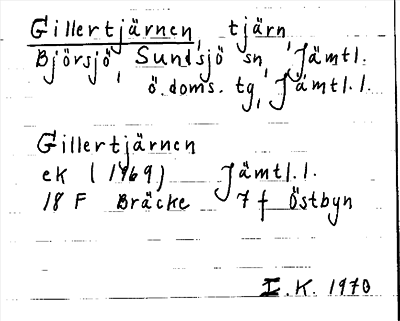 Gillertjärnen, tjärn,
Björsjö, Sundsjö sn, Jämtl.
ö. doms. tg, Jämtl. l.
Gillertjärnen
ek (1969) Jämtl. l.
18 F Bräcke 7 f Östbyn
I. K. 1970